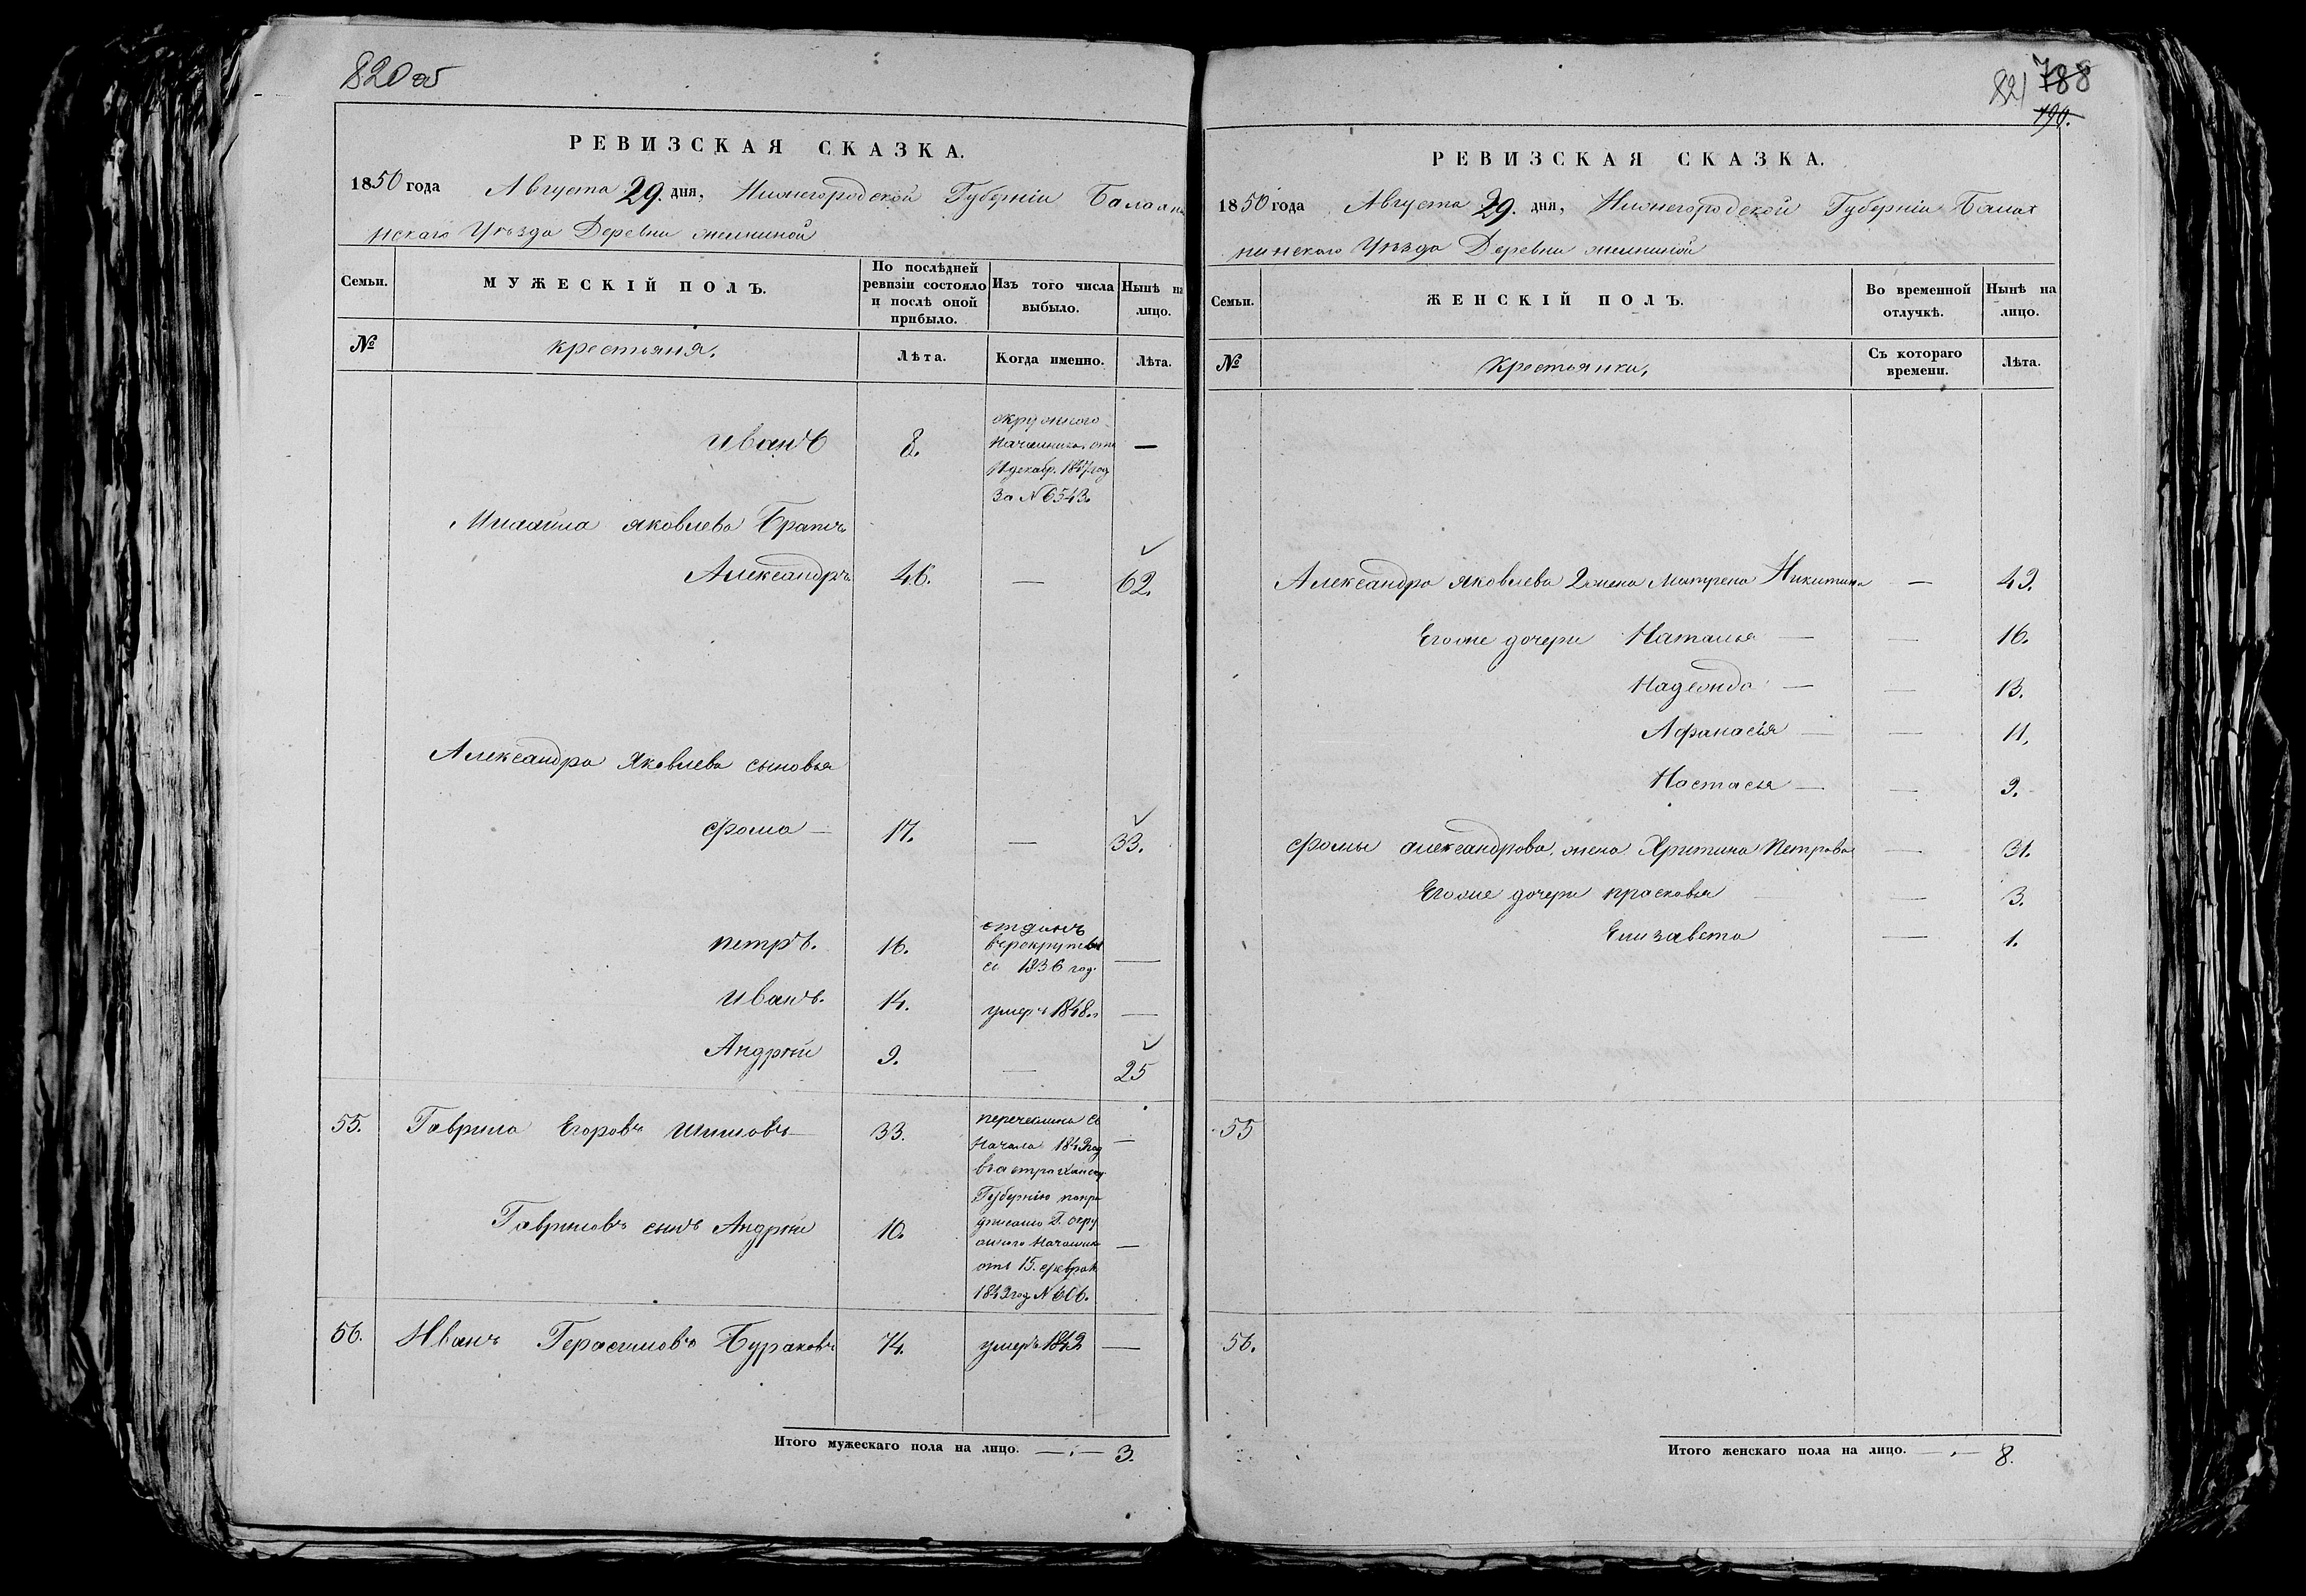 820 об
РЕВИЗСКАЯ СКАЗКА.
1850 года Августа 29. дня, Нижегородской Губерніи Балахни
нскаго Уѣзда Деревни
Семьи.
МУЖЕСКІЙ ПОЛЪ.
По послѣдней
ревизіи состояло
и послѣ оной
прибыло.
Изъ того числа
выбыло.
Нынѣ на
лицо.
№
крестьяня.
Лѣта.
Когда именно.
Лѣта.
окружнаго
Иванъ 8. Начальника отъ —
декабр. 1847 год
За № 6543.
Михайла яковлева Братъ
Александръ 46. — 62.
Александра Яковлева сыновья
фома — 17. — 33.
отданъ
петръ. 16. врекруты
1836 год. —
Иванъ. 14. умеръ 1848. —
Андрѣй 9. — 25
55. Гаврила Егоровъ Шиловъ 33. перечислинъ съ
Начала 1843 год —
Губернію попре
Гавриловъ сынъ Андрѣй 10. дписанію Г. окру
жнаго Началника —
отъ 15. феврал
год № 606.
56. Иванъ Герасимовъ Бураковъ 74. умеръ 1842 —
Итого мужескаго пола на лицо. — 3.
821 788
190.
РЕВИЗСКАЯ СКАЗКА.
1850 года Августа 29. дня, Нижегородской Губерніи Балах
нинскаго Уѣзда Деревни
Семьи.
ЖЕНСКІЙ ПОЛЪ.
Во временной
отлучкѣ.
Нынѣ на
лицо.
№
Крестьянки,
Съ котораго
времени.
Лѣта.
Александра яковлева 2 жена Матрена Никитина — 49.
Егоже дочери Наталья — — 16.
Надежда — — 13.
Афанасія — — 11.
Настасья — — 9.
фомы александрова жена Хритина Петрова — 31.
Егоже дочери прасковья — 3.
Елизавета — 1.
55
56.
Итого женскаго пола на лицо. — 8.